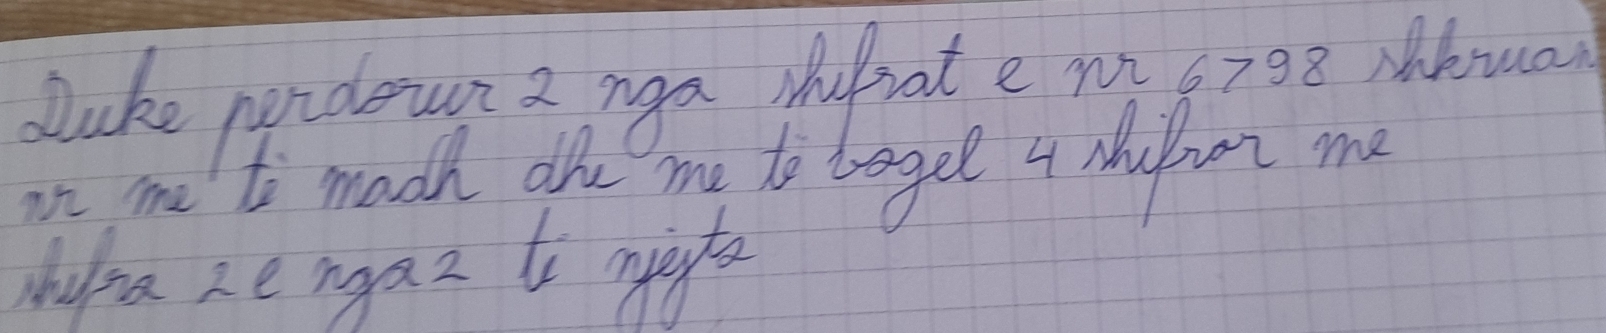 Duke perdorur 2 nga shifrat e nr 6798 shkruan
nr me të madh dhe me të vogel 4 shifror me
shifra 2 e nga 2 të njejta